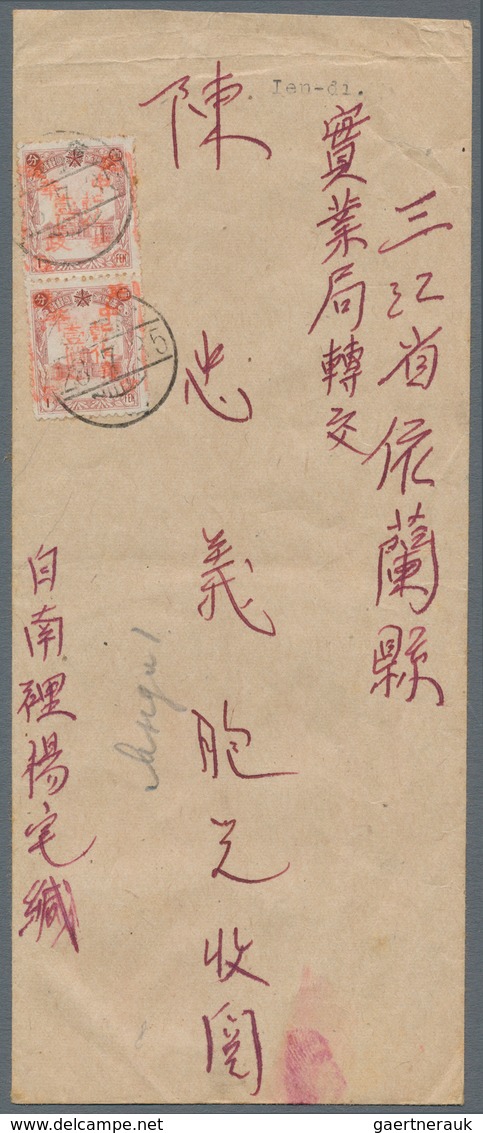 三江省依蘭縣
實業局轉交
陳忠義胞兄收閱
自南裡楊宅緘
Ien-di.
HipPostcard.com
gaertnerauk